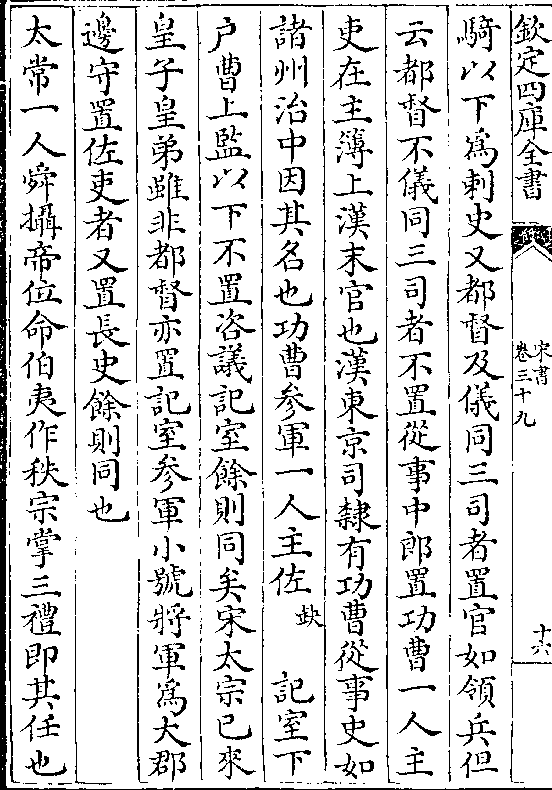 欽定四庫全書
宋書
卷三十九
十六
騎以下為刺史又都督及儀同三司者置官如領兵但
云都督不儀同三司者不置從事中郎置功曹一人主
吏在主簿上漢末官也漢東京司隸有功曹從事史如
諸州治中因其名也功曹參軍一人主佐缺 記室下
户曹上監以下不置咨議記室餘則同矣宋太宗已來
皇子皇弟雖非都督亦置記室參軍小號將軍為大郡
邊守置佐吏者又置長史餘則同也
太常一人舜攝帝位命伯夷作秩宗掌三禮即其任也